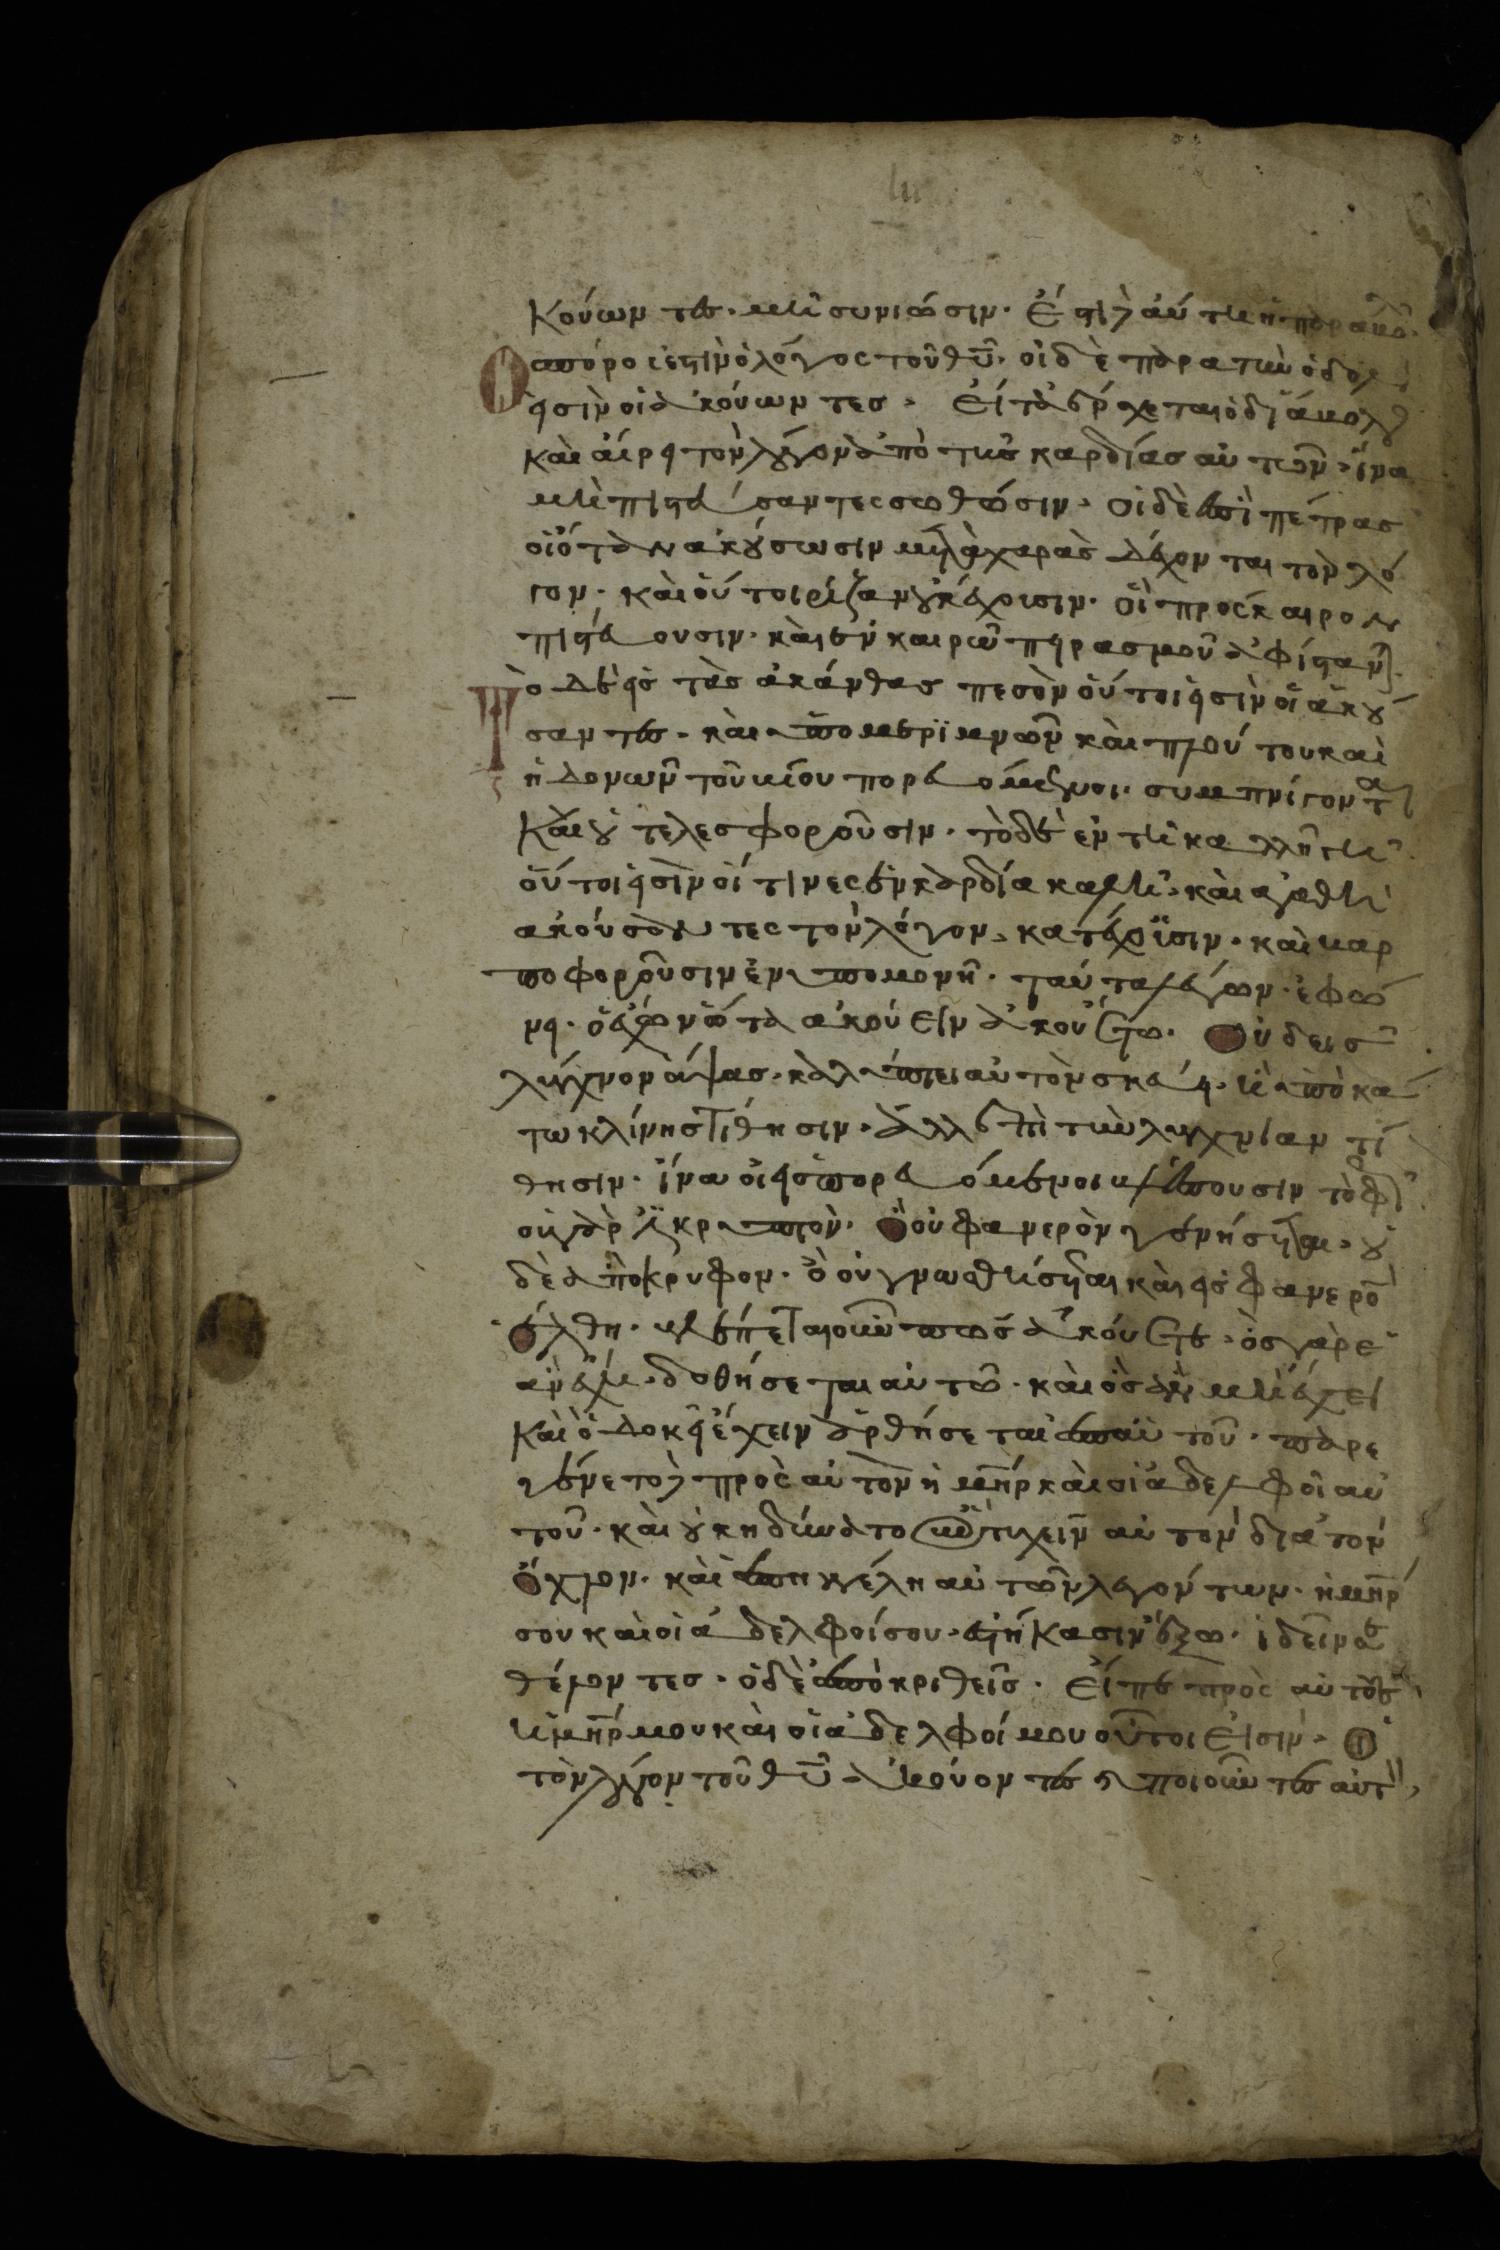 κούωντες. μὴ συνιῶσιν. ἔστι δὲ αὕτη ἡ παραβο
Ο σπόρος ἐστὶν ὁ λόγος τοῦ θῦ. οἱ δὲ παρὰ τὴν ὁδὸν
εἰσὶν οἱ ἀκούωντες. Εἶτα ἔρχεται ὁ διάβολος
καὶ αἴρει τὸν λόγον ἀπὸ τῆς καρδίας αὐτῶν. ἵνα
μὴ πιστεύσαντες σωθῶσιν. οἱ δὲ ἐπὶ πέτρας
οἳ ὅταν ἀκούσωσιν μετὰ χαρᾶς δέχονται τὸν λό
γον. καὶ οὗτοι ρίζαν οὐκ ἔχουσιν. οἳ πρὸς καιρὸν
πιστεύουσιν. καὶ ἐν καιρῶ πειρασμοῦ ἀφίστανται.
Τὸ δὲ εἰς τὰς ἀκάνθας πεσὸν οὗτοι εἰσὶν οἱ ἀκού
σαντες. καὶ ὑπὸ μεριμνῶν καὶ πλούτου καὶ
ἡδονῶν τοῦ βίου πορευόμενοι. συμπνίγονται
καὶ οὐ τελεσφοροῦσιν. τὸ δὲ ἐν τῆ καλλῆ γῆ
οὗτοι εἰσὶν οἵτινες ἐν καρδία καλῆ καὶ ἀγαθῆ
ἀκούσαντες τὸν λόγον, κατέχουσιν. καὶ καρ
ποφοροῦσιν ἐν ὑπομονῆ. ταῦτα λέγων. ἐφώ
νει. ὁ ἔχων ὦτα ἀκούειν ἀκουέτω. Οὐδεὶς
λύχνον ἅψας. καλύπτει αὐτὸν σκεύει. ἢ ὑποκά
τω κλίνης τίθησιν. ἀλλ' ἐπὶ τὴν λυχνίαν τί
θησιν. ἵνα οἱ εἰσπορευόμενοι βλέπουσιν τὸ φῶς
οὐ γάρ ἐστι κρυπτὸν. ὃ οὐ φανερὸν γενήσεται. οὐ
δὲ ἀπόκρυφον. ὃ οὐ γνωσθήσεται καὶ εἰς φανερὸν
ἔλθη. βλέπετε οὖν πῶς ἀκούετε. ὃς γὰρ ἐ
ὰν ἔχη. δοθήσεται αὐτῶ. καὶ ὃς ἂν μὴ ἔχει
καὶ ὃ δοκεῖ ἔχειν ἀρθήσεται ἀπ' αὐτοῦ. παρε
γένετο δὲ πρὸς αὐτὸν ἡ μηρ καὶ οἱ ἀδελφοὶ αὐ
τοῦ. καὶ οὐκ ηδύνατο συντυχεῖν αὐτὸν διὰ τὸν
ὄχλον. καὶ ἀπηγγέλη αὐτῶ λεγόντων. ἡ μηρ
σου καὶ οἱ ἀδελφοί σου. ἑστήκασιν ἔξω. ἰδεῖν σε
θέλοντες. ὁ δὲ ἀποκριθεὶς. Εἶπε πρὸς αὐτοὺς
ἡ μηρ μου καὶ οἱ ἀδελφοί μου οὗτοι εἰσὶν. Οἱ
τὸν λόγον τοῦ θῦ ἀκούοντες καὶ ποιοῦντες αὐτὸν